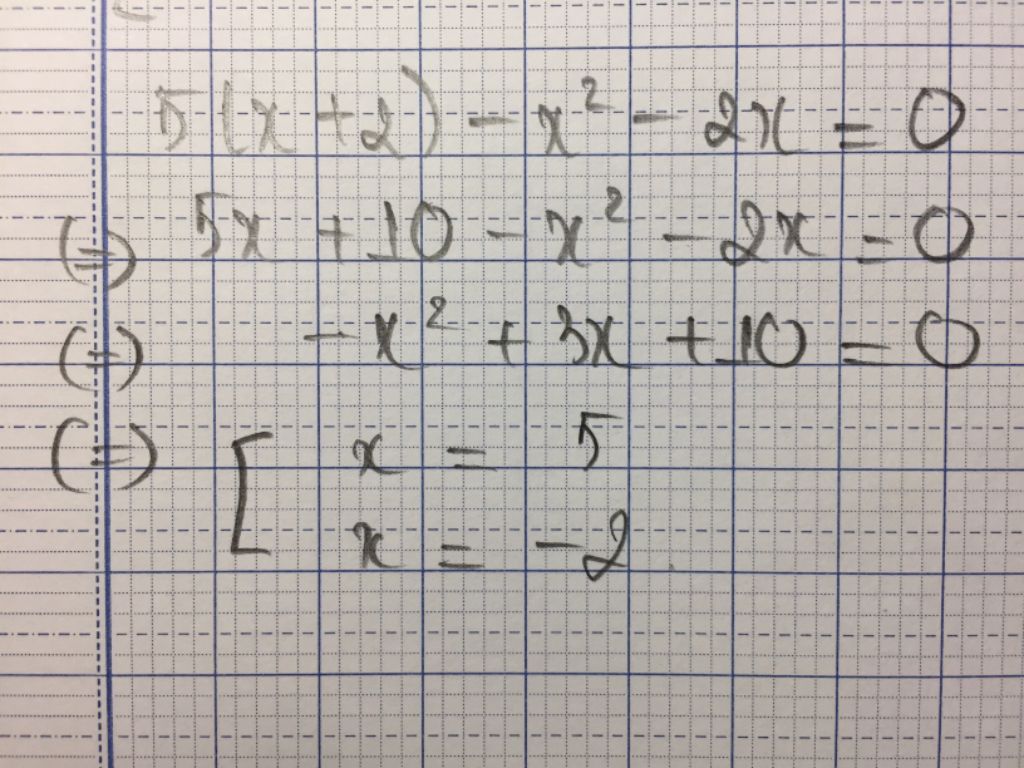 5(x + 2) - x² - 2x = 0
(=) 5x + 10 - x² - 2x = 0
(=) - x² + 3x + 10 = 0
(=) [ x = 5
x = - 2